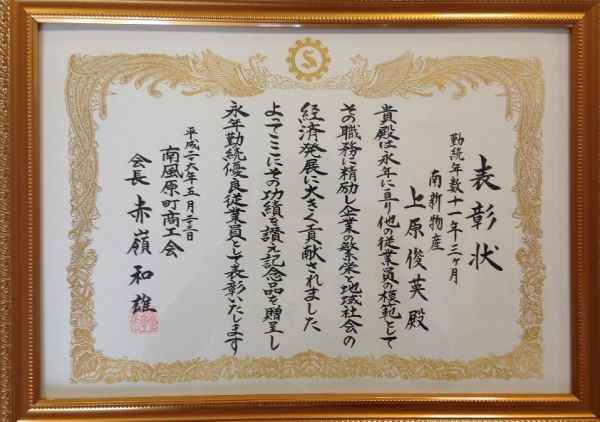 表彰状
勤続年数十一年三ヶ月
南新物産
上原俊英殿
貴殿は永年に亘り他の従業員の模範として
その職務に精励し企業の繁栄と地域社会の
経済発展に大きく貢献されました
よってここにその功績を讃え記念品を贈呈し
永年勤続優良従業員として表彰いたします
平成二十六年五月二十三日
南風原町商工会
会長 赤嶺和雄